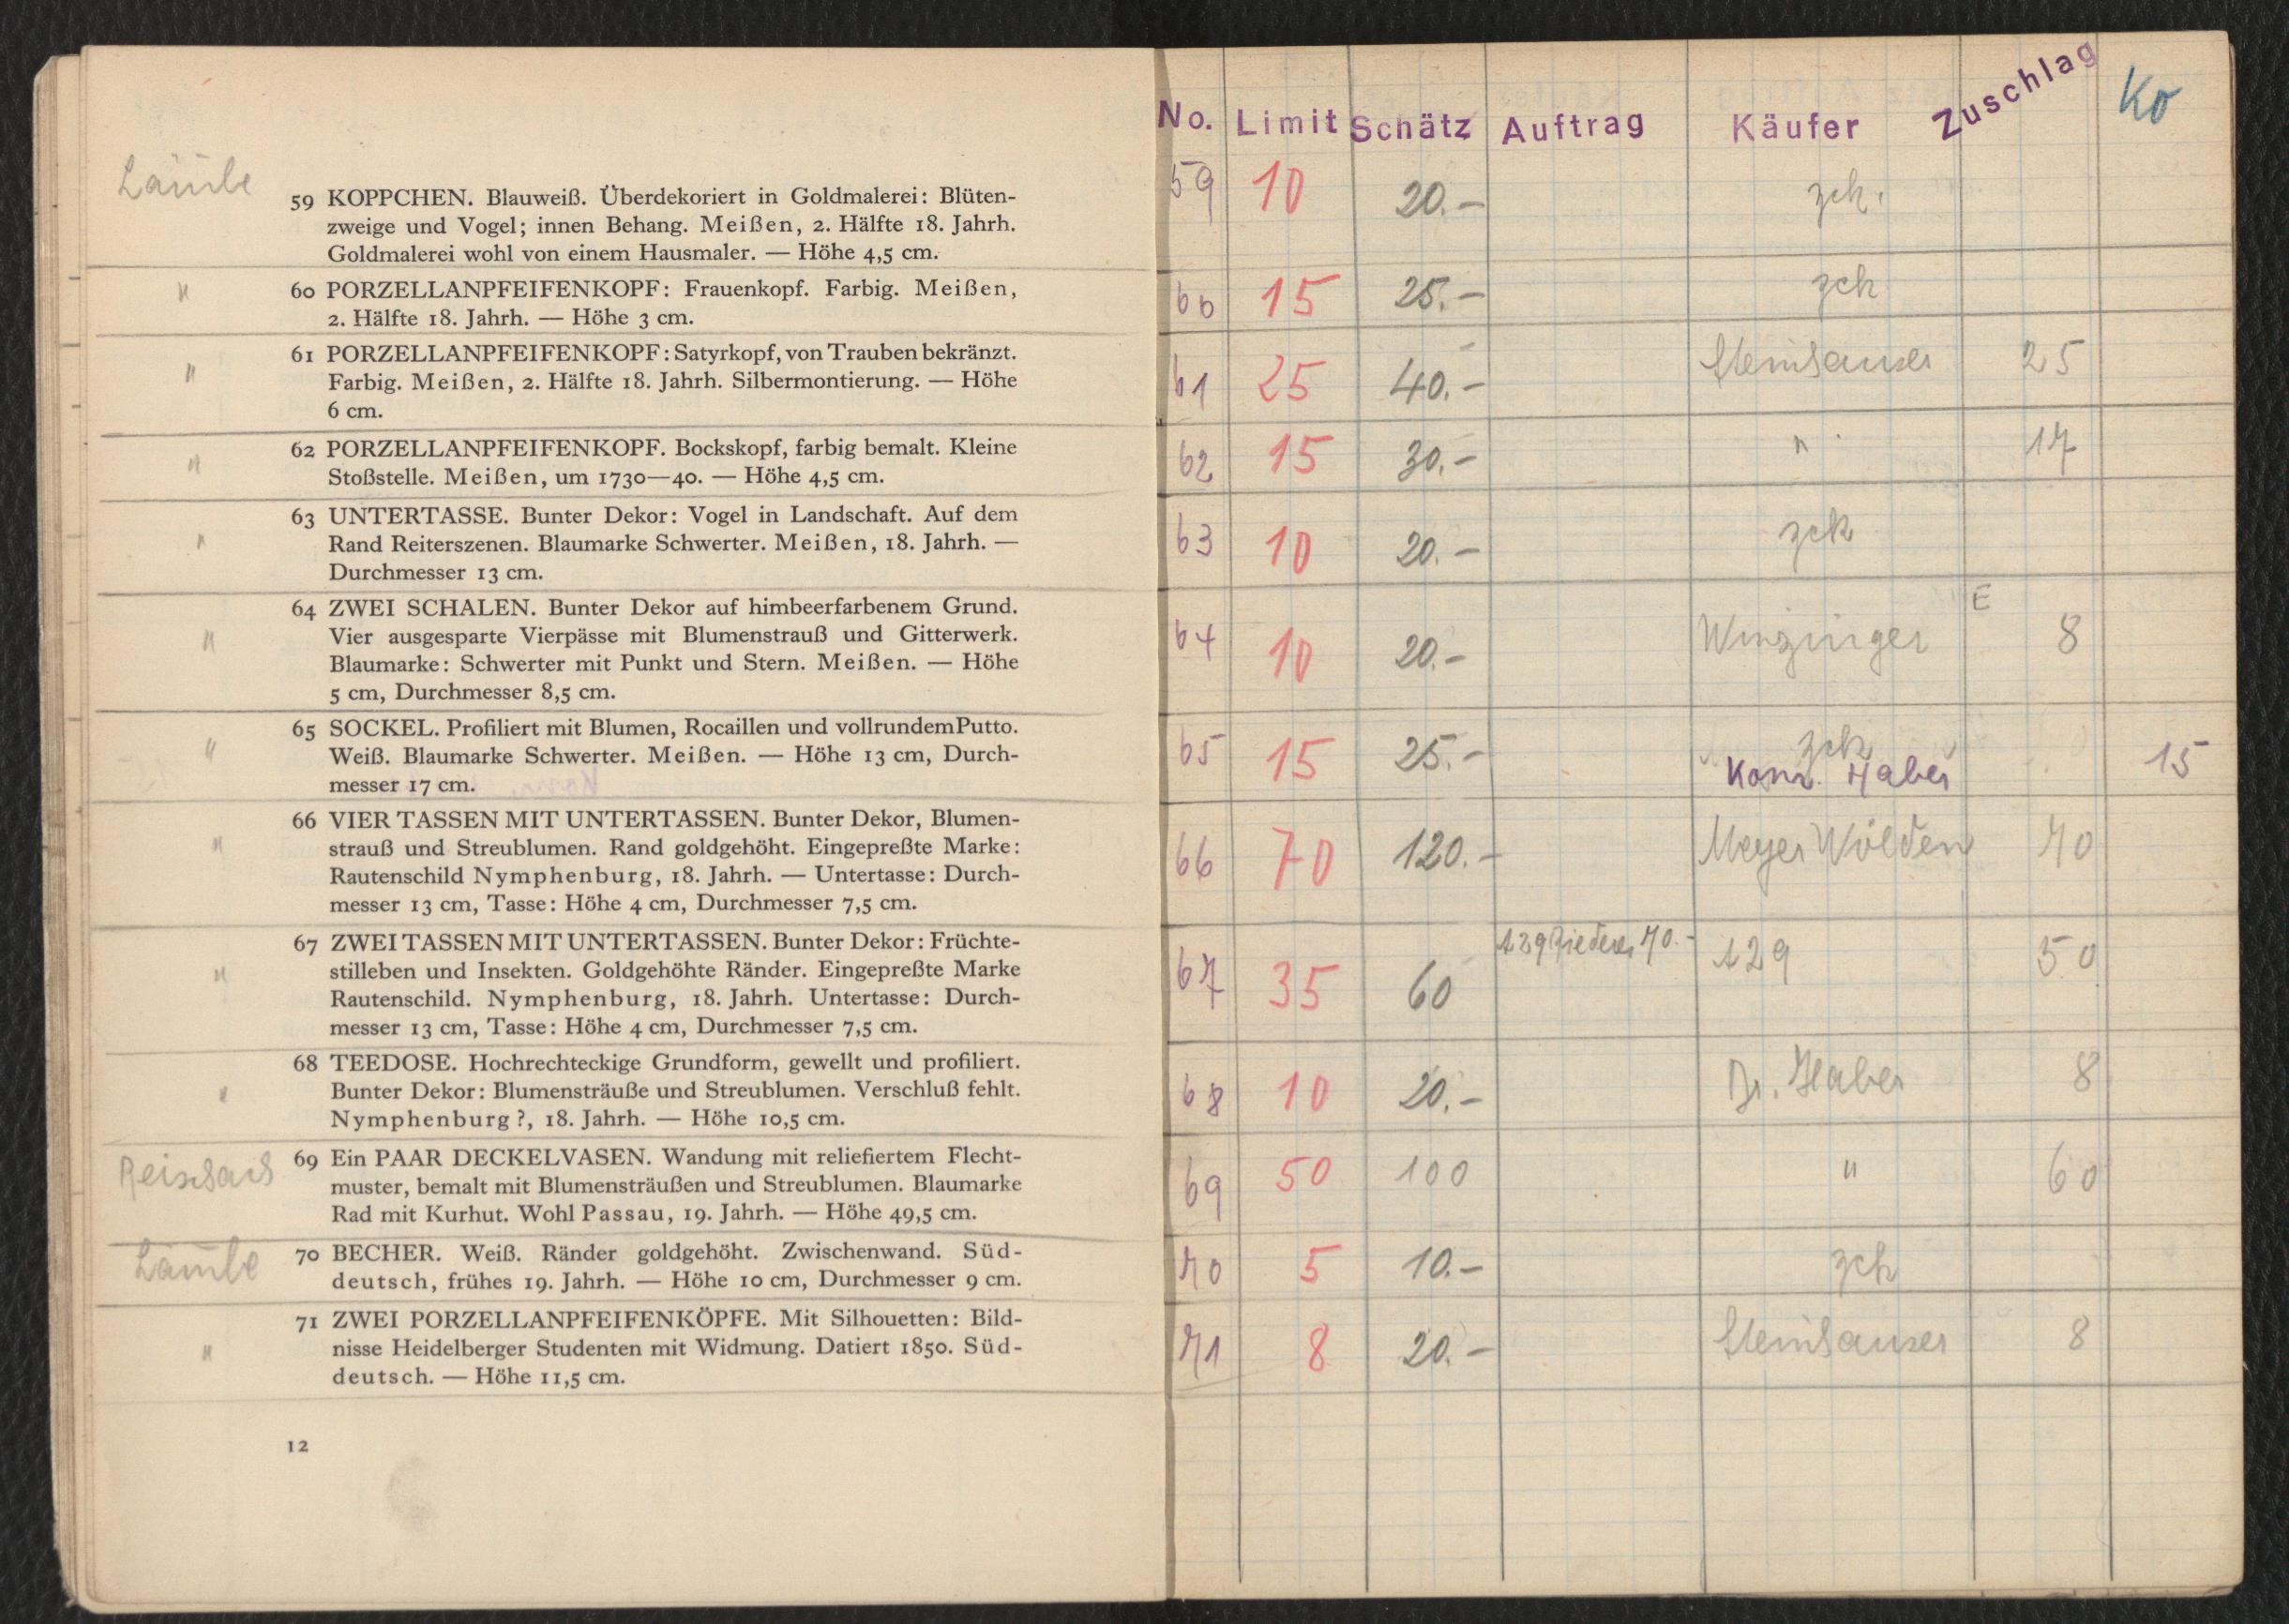 59 KOPPCHEN. Blauweiß. Überdekoriert in Goldmalerei: Blüten-
zweige und Vogel; innen Behang. Meißen, 2. Hälfte 18. Jahrh.
Goldmalerei wohl von einem Hausmaler. — Höhe 4,5 cm.
" 60 PORZELLANPFEIFENKOPF: Frauenkopf. Farbig. Meißen,
2. Hälfte 18. Jahrh. — Höhe 3 cm.
61 PORZELLANPFEIFENKOPF: Satyrkopf, von Trauben bekränzt.
" Farbig. Meißen, 2. Hälfte 18. Jahrh. Silbermontierung. — Höhe
6 cm.
" 62 PORZELLANPFEIFENKOPF. Bockskopf, farbig bemalt. Kleine
Stoßstelle. Meißen, um 1730—40. — Höhe 4,5 cm.
63 UNTERTASSE. Bunter Dekor: Vogel in Landschaft. Auf dem
" Rand Reiterszenen. Blaumarke Schwerter. Meißen, 18. Jahrh. —
Durchmesser 13 cm.
64 ZWEI SCHALEN. Bunter Dekor auf himbeerfarbenem Grund.
" Vier ausgesparte Vierpässe mit Blumenstrauß und Gitterwerk.
Blaumarke: Schwerter mit Punkt und Stern. Meißen. — Höhe
5 cm, Durchmesser 8,5 cm.
65 SOCKEL. Profiliert mit Blumen, Rocaillen und vollrundem Putto.
" Weiß. Blaumarke Schwerter. Meißen. — Höhe 13 cm, Durch-
messer 17 cm.
66 VIER TASSEN MIT UNTERTASSEN. Bunter Dekor, Blumen-
" strauß und Streublumen. Rand goldgehöht. Eingepreßte Marke:
Rautenschild Nymphenburg, 18. Jahrh. — Untertasse: Durch-
messer 13 cm, Tasse: Höhe 4 cm, Durchmesser 7,5 cm.
67 ZWEI TASSEN MIT UNTERTASSEN. Bunter Dekor: Früchte-
" stilleben und Insekten. Goldgehöhte Ränder. Eingepreßte Marke
Rautenschild. Nymphenburg, 18. Jahrh. Untertasse: Durch-
messer 13 cm, Tasse: Höhe 4 cm, Durchmesser 7,5 cm.
68 TEEDOSE. Hochrechteckige Grundform, gewellt und profiliert.
" Bunter Dekor: Blumensträuße und Streublumen. Verschluß fehlt.
Nymphenburg?, 18. Jahrh. — Höhe 10,5 cm.
69 Ein PAAR DECKELVASEN. Wandung mit reliefiertem Flecht-
muster, bemalt mit Blumensträußen und Streublumen. Blaumarke
Rad mit Kurhut. Wohl Passau, 19. Jahrh. — Höhe 49,5 cm.
70 BECHER. Weiß. Ränder goldgehöht. Zwischenwand. Süd-
deutsch, frühes 19. Jahrh. — Höhe 10 cm, Durchmesser 9 cm.
71 ZWEI PORZELLANPFEIFENKÖPFE. Mit Silhouetten: Bild-
" nisse Heidelberger Studenten mit Widmung. Datiert 1850. Süd-
deutsch. — Höhe 11,5 cm.
12
No. Limit Schätz Auftrag Käufer Zuschlag Ko
59 10 20.- zck.
60 15 25.- zck
61 25 40.- Steinhauser 25
62 15 30.- " 17
63 10 20.- zck
64 10 20.- Winzinger E 8
65 15 25.- zck
Konr. Haber 15
66 70 120.- Meyer Wölden 70
67 35 60 50
68 10 20.- Dr. Haber 8
69 50 100 " 60
70 5 10.- zck
71 8 20.- Steinhauser 8